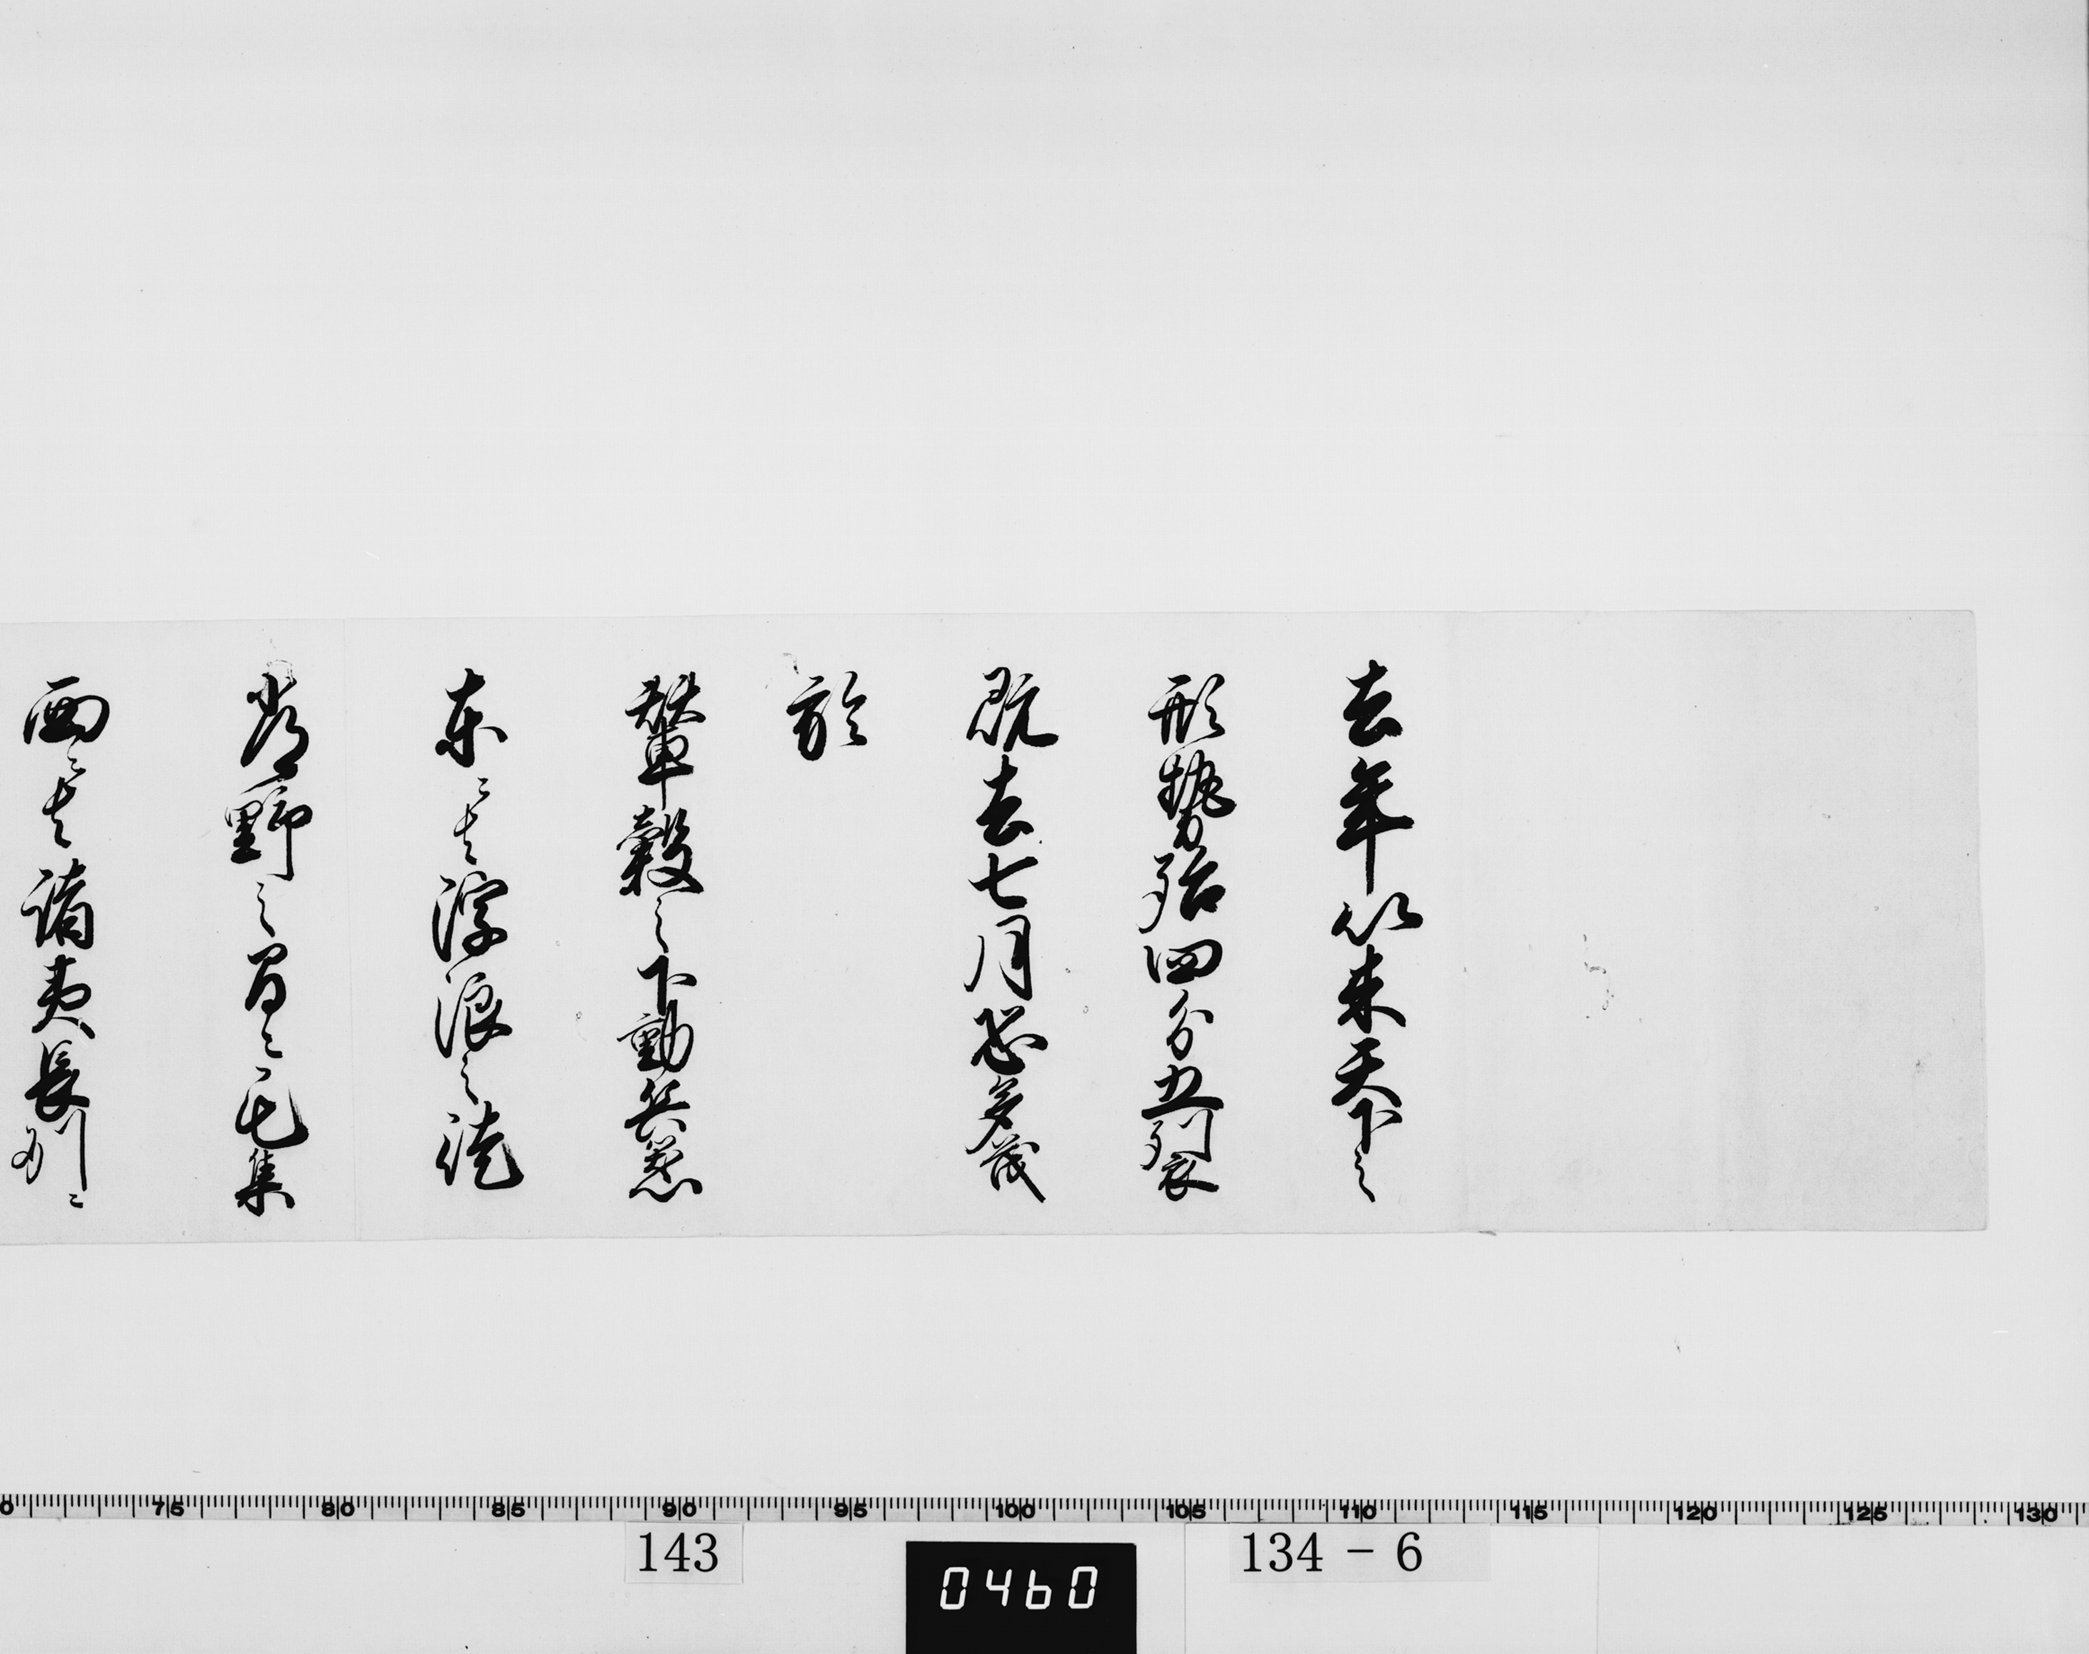 去年以来天下之
形勢殆四分五裂
既去七月恐多茂
於
輦轂之下動兵器
東ニ者浮浪之徒
常野之間ニ屯集
西ニ者諸夷長州ニ
75 80 85 90 95 100 105 110 115 120 125 130
143
0460
134-6